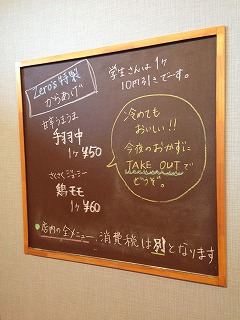 Zero's特製
からあげ
学生さんは1ケ
10円引きでーす。
甘辛うまうま
手羽中
1ケ ¥50
さくさくジューシー
鶏モモ
1ケ ¥60
冷めても
おいしい!!
今夜のおかずに
TAKE OUTで
どうぞ。
店内の全メニュー、消費税は別となります